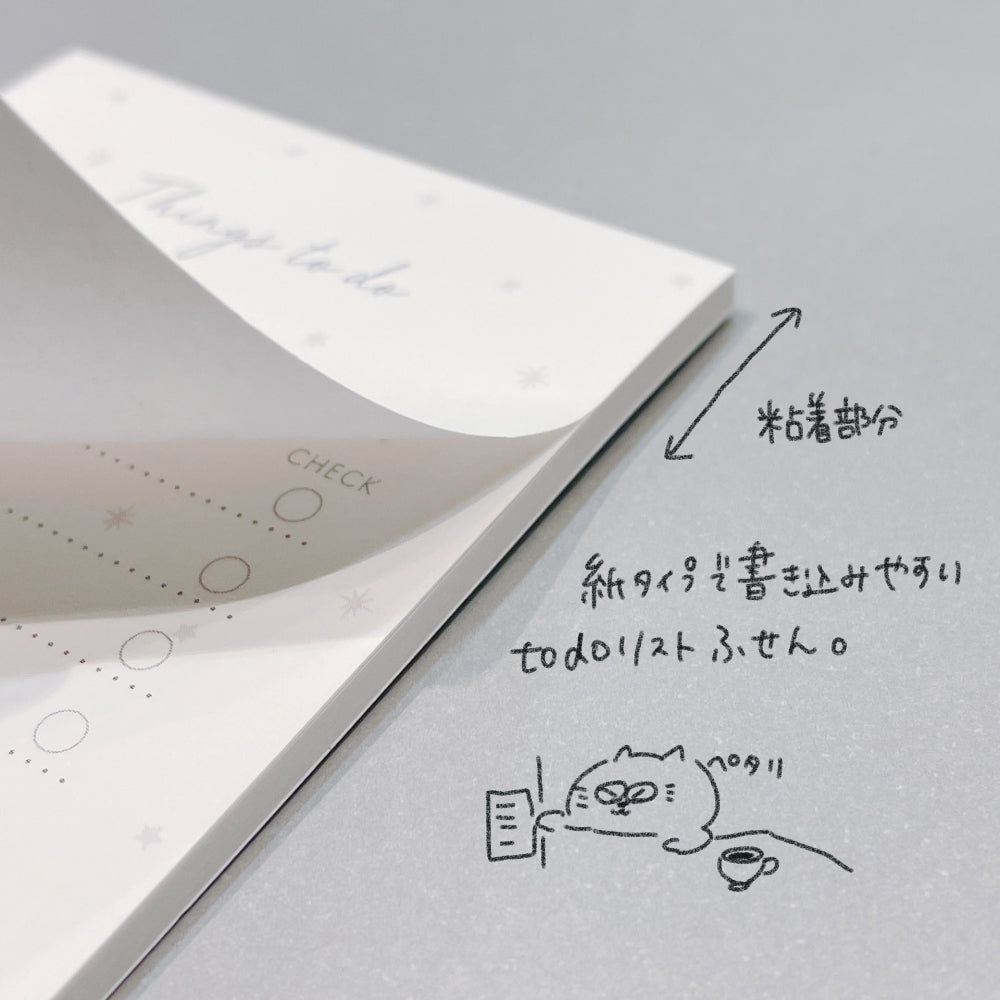 Things to do
CHECK
粘着部分
紙タイプで書き込みやすい
todoリストふせん。
ペタリ